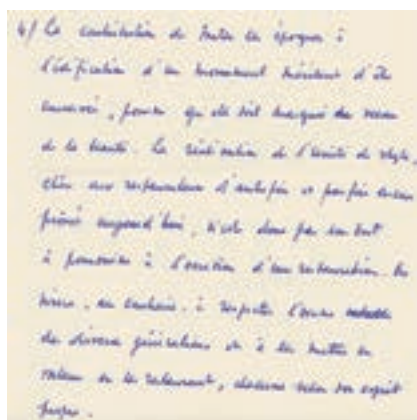 4/ La contribution de toutes les époques à
l'édification d'un monument méritent d'être
conservé, pourvu qu'elle soit marquée du sceau
de la beauté. La réalisation de l'unité de style,
chère aux restaurateurs d'autrefois et parfois encore
prônée aujourd'hui, n'est donc pas un but
à poursuivre à l'occasion d'une restauration. On
visera, au contraire, à respecter l'œuvre
des diverses générations et à les mettre en
valeur en les restaurant, chacune selon son esprit
propre.